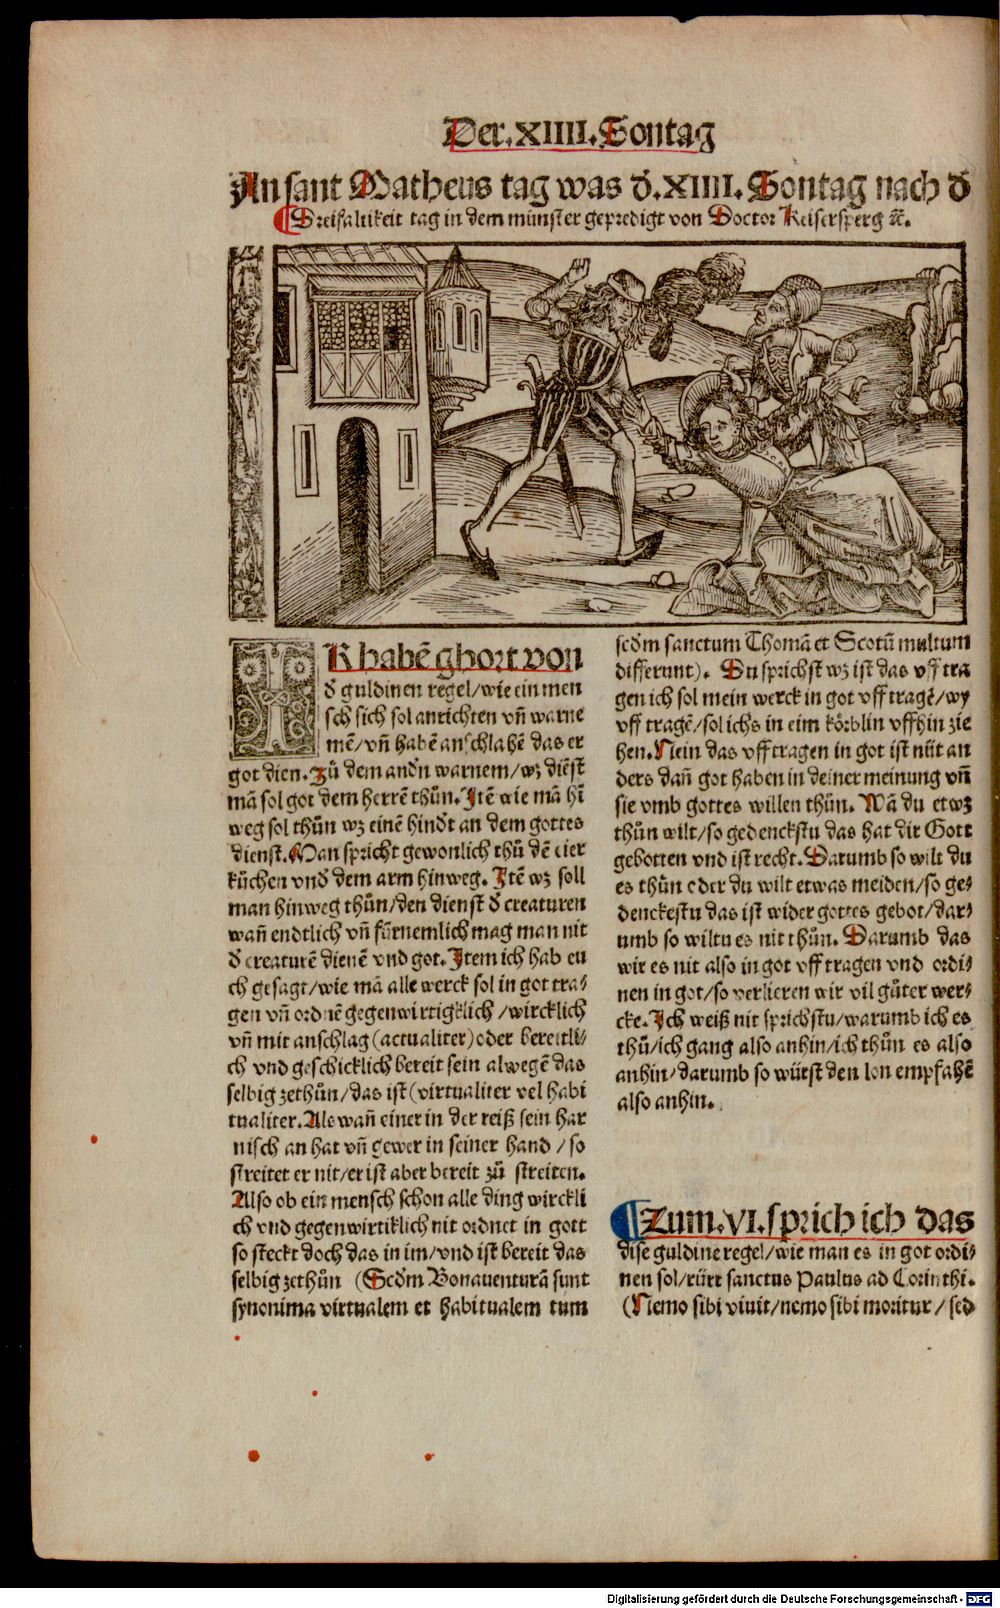 Der.XIIII.Sontag
An sant Matheus tag was đ.XIIII.Sontag nach đ
¶Dreifaltikeit tag in dem münster gepredigt von Doctor Keisersperg ꝛc̄.
IR habē ghort von
đ guldinen regel/wie ein men
sch sich sol anrichten vn̄ warne
mē/vn̄ habē anschlahē das er
got dien. Zů dem andn̄ warnem/wz diēst
mā sol got dem herrē thůn. Itē wie mā hī
weg sol thůn wz einē hindt̄ an dem gottes
dienst. Man spricht gewonlich thů dē tier
kůchen vnđ dem arm hinweg. Itē wz soll
man hinweg thůn/den dienst đ creaturen
wan̄ endtlich vn̄ fürnemlich mag man nit
đ creaturē dienē vnd got. Item ich hab eu
ch gesagt/wie mā alle werck sol in got tra⸗
gen vn̄ ordnē gegenwirtigklich/wircklich
vn̄ mit anschlag (actualiter) oder bereitli⸗
ch vnd geschicklich bereit sein alwegē das
selbig zethůn/das ist (virtualiter vel habi
tualiter. Als wan̄ einer in der reiß sein har
nisch an hat vn̄ gewer in seiner hand/so
streitet er nit/er ist aber bereit zů streiten.
Also ob ein mensch schon alle ding wirckli
ch vnd gegenwirtiklich nit ordnet in gott
so steckt doch das in im/vnd ist bereit das
selbig zethůn (Scđm Bonauenturā sunt
synonima virtualem et habitualem tum
scđm sanctum Thomā et Scotū multum
differunt). Du sprichst wz ist das vff tra
gen ich sol mein werck in got vff tragē/wy
vff tragē/sol ichs in eim körblin vffhin zie
hen. Nein das vff tragen in got ist nüt an
ders dan̄ got haben in deiner meinung vn̄
sie vmb gottes willen thůn. Wā du etwz
thůn wilt/so gedenckstu das hat dir Gott
gebotten vnd ist recht. Darumb so wilt du
es thůn oder du wilt etwas meiden/so ge⸗
denckestu das ist wider gottes gebot/dar⸗
umb so wiltu es nit thůn. Darumb das
wir es nit also in got vff tragen vnd ordi⸗
nen in got/so verlieren wir vil gůter wer⸗
cke. Ich weiß nit sprichstu/warumb ich es
thů/ich gang also anhin/ich thůn es also
anhin/darumb so würst den lon empfahē
also anhin.
¶Zum.VI.sprich ich das
dise guldine regel/wie man es in got ordi⸗
nen sol/rürt sanctus Paulus ad Corinthi.
(Nemo sibi viuit/nemo sibi moritur/sed
Digitalisierung gefördert durch die Deutsche Forschungsgemeinschaft - DFG